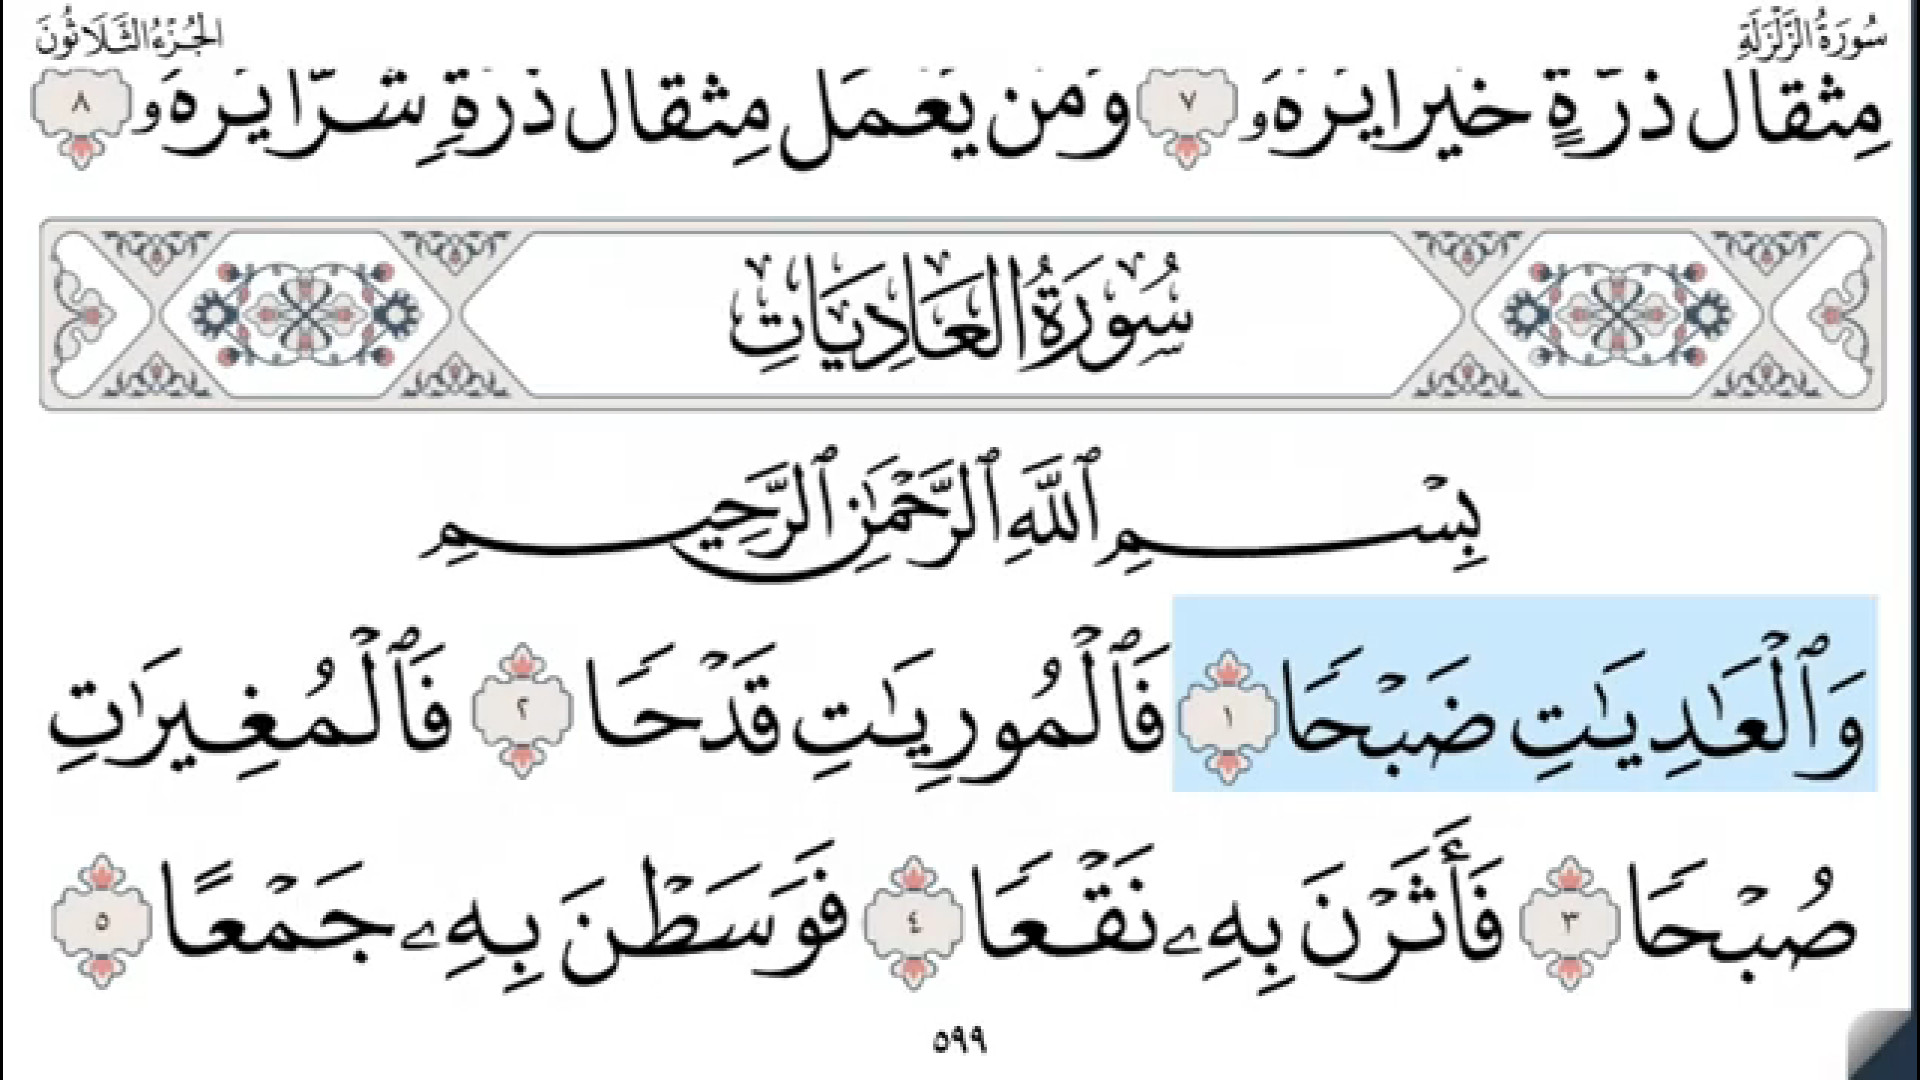 سُورَةُ الزَّلْزَلَةِ الجُزْءُ الثَّلَاثُونَ
مِثْقَالَ ذَرَّةٍ خَيْرًا يَرَهُۥ ٧ وَمَن يَعْمَلْ مِثْقَالَ ذَرَّةٍ شَرًّا يَرَهُۥ ٨
سُورَةُ العَادِيَاتِ
بِسْمِ ٱللَّهِ ٱلرَّحْمَٰنِ ٱلرَّحِيمِ
وَٱلْعَٰدِيَٰتِ ضَبْحًا ١ فَٱلْمُورِيَٰتِ قَدْحًا ٢ فَٱلْمُغِيرَٰتِ
صُبْحًا ٣ فَأَثَرْنَ بِهِۦ نَقْعًا ٤ فَوَسَطْنَ بِهِۦ جَمْعًا ٥
٥٩٩